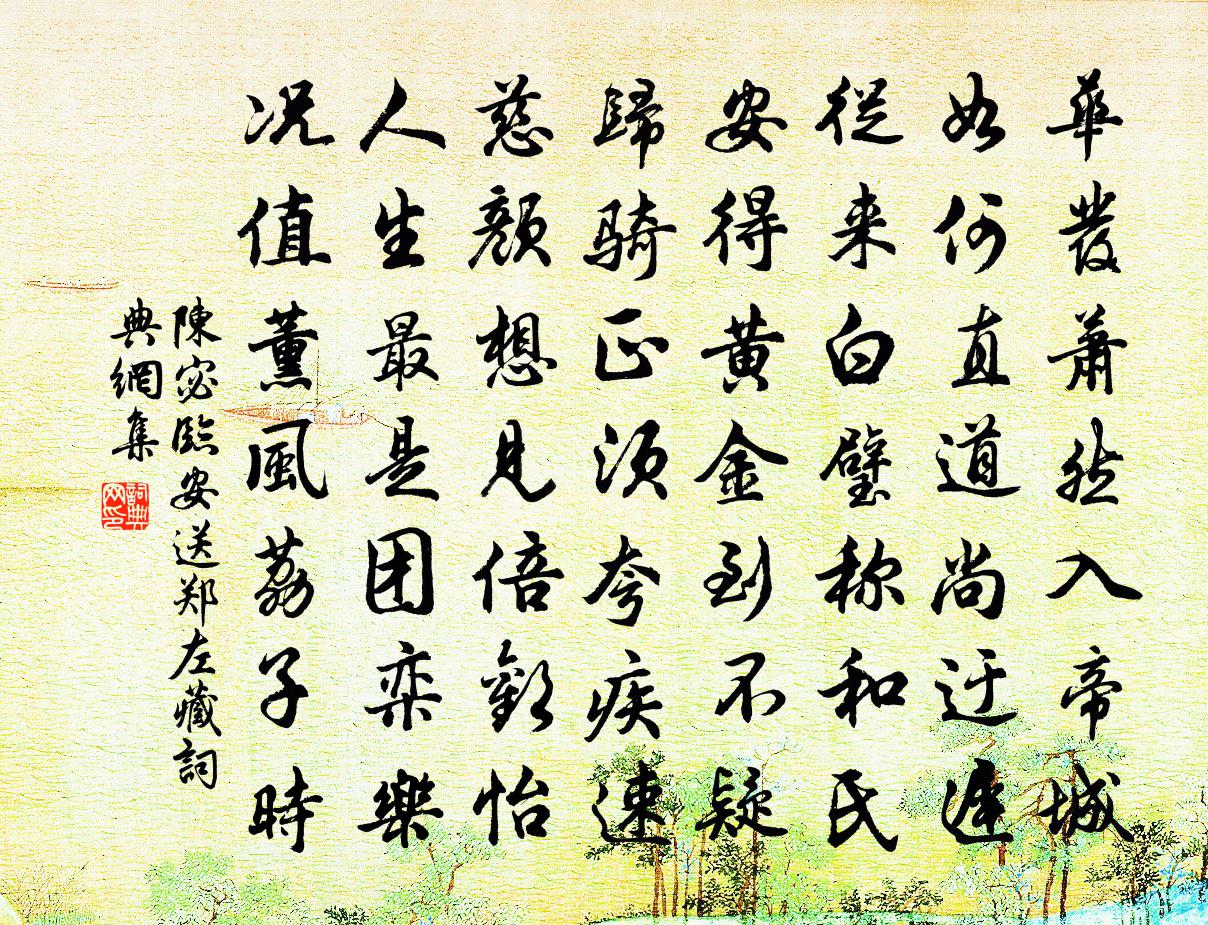 華發蕭然入帝城
如何直道尚迂遲
從来白璧称和氏
安得黄金到不疑
歸騎正須夸疾速
慈顔想見倍歡怡
人生最是团栾樂
况值薰風荔子時
陳宓臨安送郑左藏詞
典網集
詞典
网印